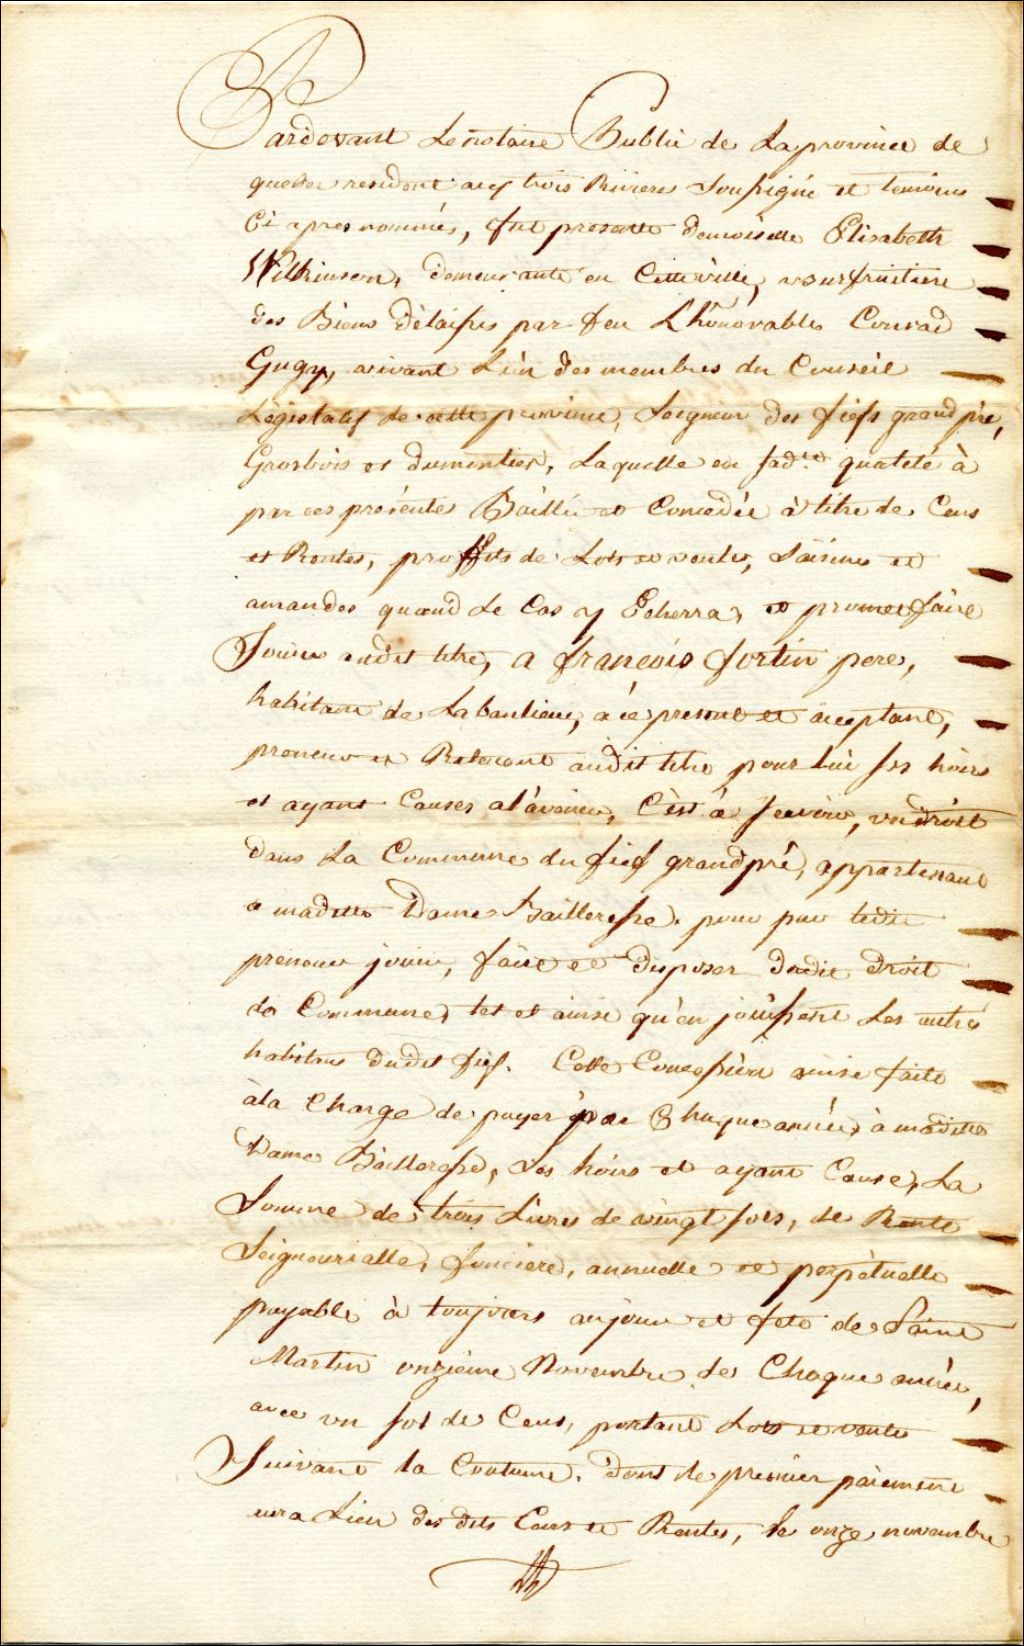 Pardevant Le notaire Public de La province de
quebec resident aux trois Rivieres Soussigné et temoins
Ci apres nommés, fut presente demoiselle Elisabeth
Wilkinson, demeurante en Cette ville, usufruitiere
des Biens délaissés par feu L'honorable Conrad
Gugy, vivant L'un des membres du Conseil
Legislatif de cette province, Seigneur des fiefs grandpré,
Grosbois et dumontier, Laquelle en sad.te qualité à
par ces présentes Baillé et Concedée à titre de Cens
et Rentes, proffits de Lots et ventes, Saisines et
amandes quand Le Cas y Echerra, et promet faire
Jouir audit titre, a francois fortin pere,
habitant de La banlieue, à ce present et acceptant,
preneur et Retenant audit titre pour lui ses hoirs
et ayant Causes a l'avenir, C'est à scavoir, un droit
dans La Commune du fief grandpré, appartenant
a maditte Dame Bailleresse. pour par ledit
preneur jouir, faire et disposer dudit droit
de Commune, tel et ainsi qu'en jouissent Les autres
habitans dudit fief. Cette Concession ainsi faite
à la Charge de payer par Chaque année, à maditte
Dame Bailleresse, Ses hoirs et ayant Cause, La
Somme de trois Livres de vingt sols, de Rente
Seigneurialle, fonciere, annuelle et perpétuelle
payable à toujours au jour et fete de Saint
Martin onzieme Novembre de Chaque année,
avec un sol de Cens, portant Lots et ventes
Suivant la Coutume. dont le premier paiement
aura Lieu des dits Cens et Rentes, le onze novembre